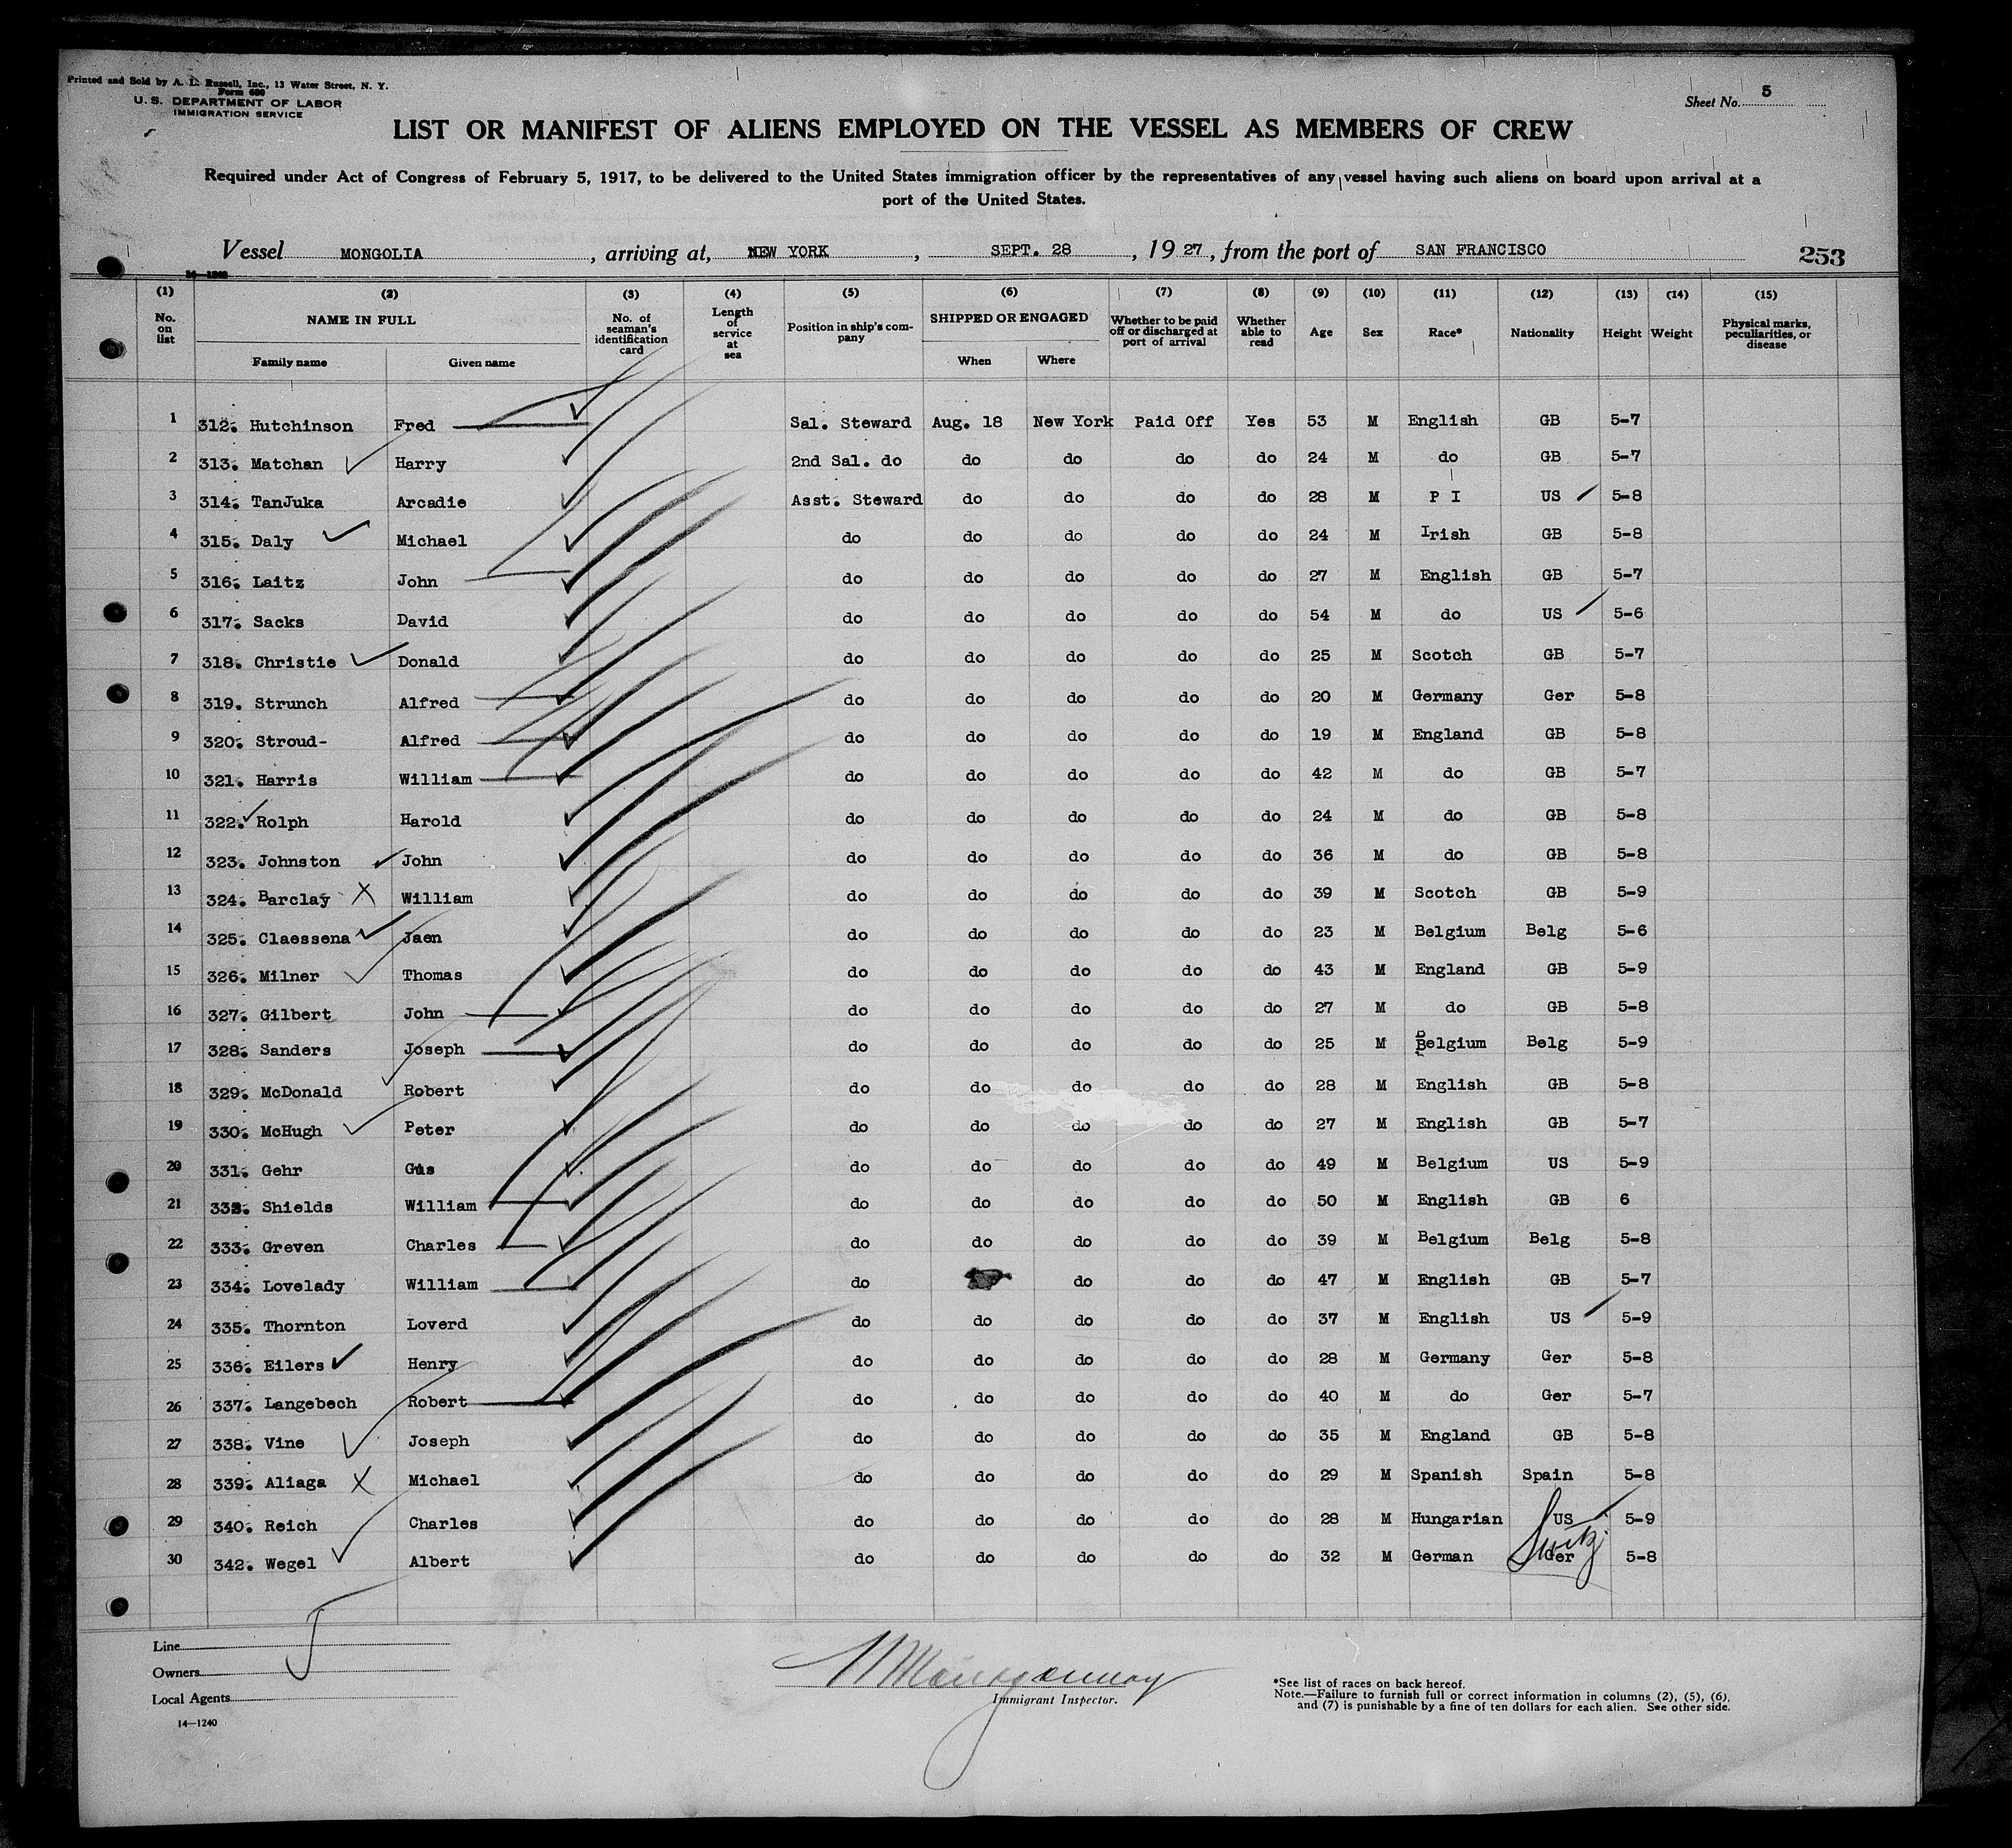 Printed and Sold by A. L. Russell, Inc., 13 Water Street, N. Y.
Form 680
U. S. DEPARTMENT OF LABOR
IMMIGRATION SERVICE
Sheet No. 5
LIST OR MANIFEST OF ALIENS EMPLOYED ON THE VESSEL AS MEMBERS OF CREW
Required under Act of Congress of February 5, 1917, to be delivered to the United States immigration officer by the representatives of any vessel having such aliens on board upon arrival at a
port of the United States.
Vessel MONGOLIA, arriving at, NEW YORK, SEPT. 28, 1927, from the port of SAN FRANCISCO 253
14-1240
(1) (2) (3) (4) (5) (6) (7) (8) (9) (10) (11) (12) (13) (14) (15)
No. on list NAME IN FULL Family name Given name No. of seaman's identification card Length of service at sea Position in ship's company SHIPPED OR ENGAGED When Where Whether to be paid off or discharged at port of arrival Whether able to read Age Sex Race* Nationality Height Weight Physical marks, peculiarities, or disease
1 312. Hutchinson Fred Sal. Steward Aug. 18 New York Paid Off Yes 53 M English GB 5-7
2 313. Matchan Harry 2nd Sal. do do do do do 24 M do GB 5-7
3 314. TanJuka Arcadie Asst. Steward do do do do 28 M P I US 5-8
4 315. Daly Michael do do do do do 24 M Irish GB 5-8
5 316. Laitz John do do do do do 27 M English GB 5-7
6 317. Sacks David do do do do do 54 M do US 5-6
7 318. Christie Donald do do do do do 25 M Scotch GB 5-7
8 319. Strunch Alfred do do do do do 20 M Germany Ger 5-8
9 320. Stroud- Alfred do do do do do 19 M England GB 5-8
10 321. Harris William do do do do do 42 M do GB 5-7
11 322. Rolph Harold do do do do do 24 M do GB 5-8
12 323. Johnston John do do do do do 36 M do GB 5-8
13 324. Barclay X William do do do do do 39 M Scotch GB 5-9
14 325. Claessena Jaen do do do do do 23 M Belgium Belg 5-6
15 326. Milner Thomas do do do do do 43 M England GB 5-9
16 327. Gilbert John do do do do do 27 M do GB 5-8
17 328. Sanders Joseph do do do do do 25 M Belgium Belg 5-9
18 329. McDonald Robert do do do do do 28 M English GB 5-8
19 330. McHugh Peter do do do do do 27 M English GB 5-7
20 331. Gehr Gus do do do do do 49 M Belgium US 5-9
21 332. Shields William do do do do do 50 M English GB 6
22 333. Greven Charles do do do do do 39 M Belgium Belg 5-8
23 334. Lovelady William do do do do 47 M English GB 5-7
24 335. Thornton Loverd do do do do do 37 M English US 5-9
25 336. Eilers Henry do do do do do 28 M Germany Ger 5-8
26 337. Langebech Robert do do do do do 40 M do Ger 5-7
27 338. Vine Joseph do do do do do 35 M England GB 5-8
28 339. Aliaga X Michael do do do do do 29 M Spanish Spain 5-8
29 340. Reich Charles do do do do do 28 M Hungarian US 5-9
30 342. Wegel Albert do do do do do 32 M German Ger 5-8
Line
Owners
Local Agents
14-1240
Montgomery
Immigrant Inspector.
*See list of races on back hereof.
Note.—Failure to furnish full or correct information in columns (2), (5), (6),
and (7) is punishable by a fine of ten dollars for each alien. See other side.